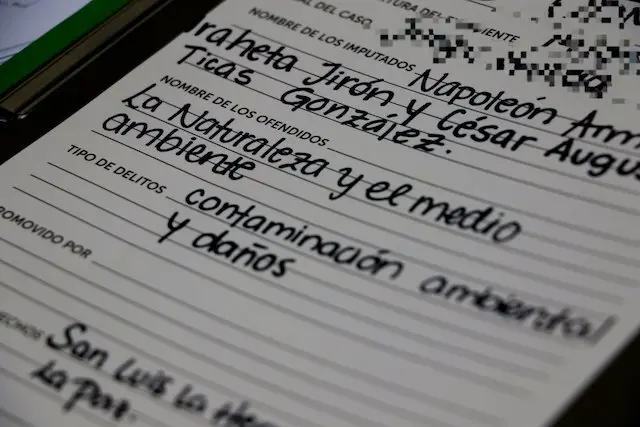 DEL CASO
NOMBRE DE LOS IMPUTADOS Napoleón
raheta Jirón y César Augus
Ticas González.
NOMBRE DE LOS OFENDIDOS
La Naturaleza y el medio
ambiente
TIPO DE DELITOS contaminación ambiental
y daños
PROMOVIDO POR
San Luis La
La Paz.